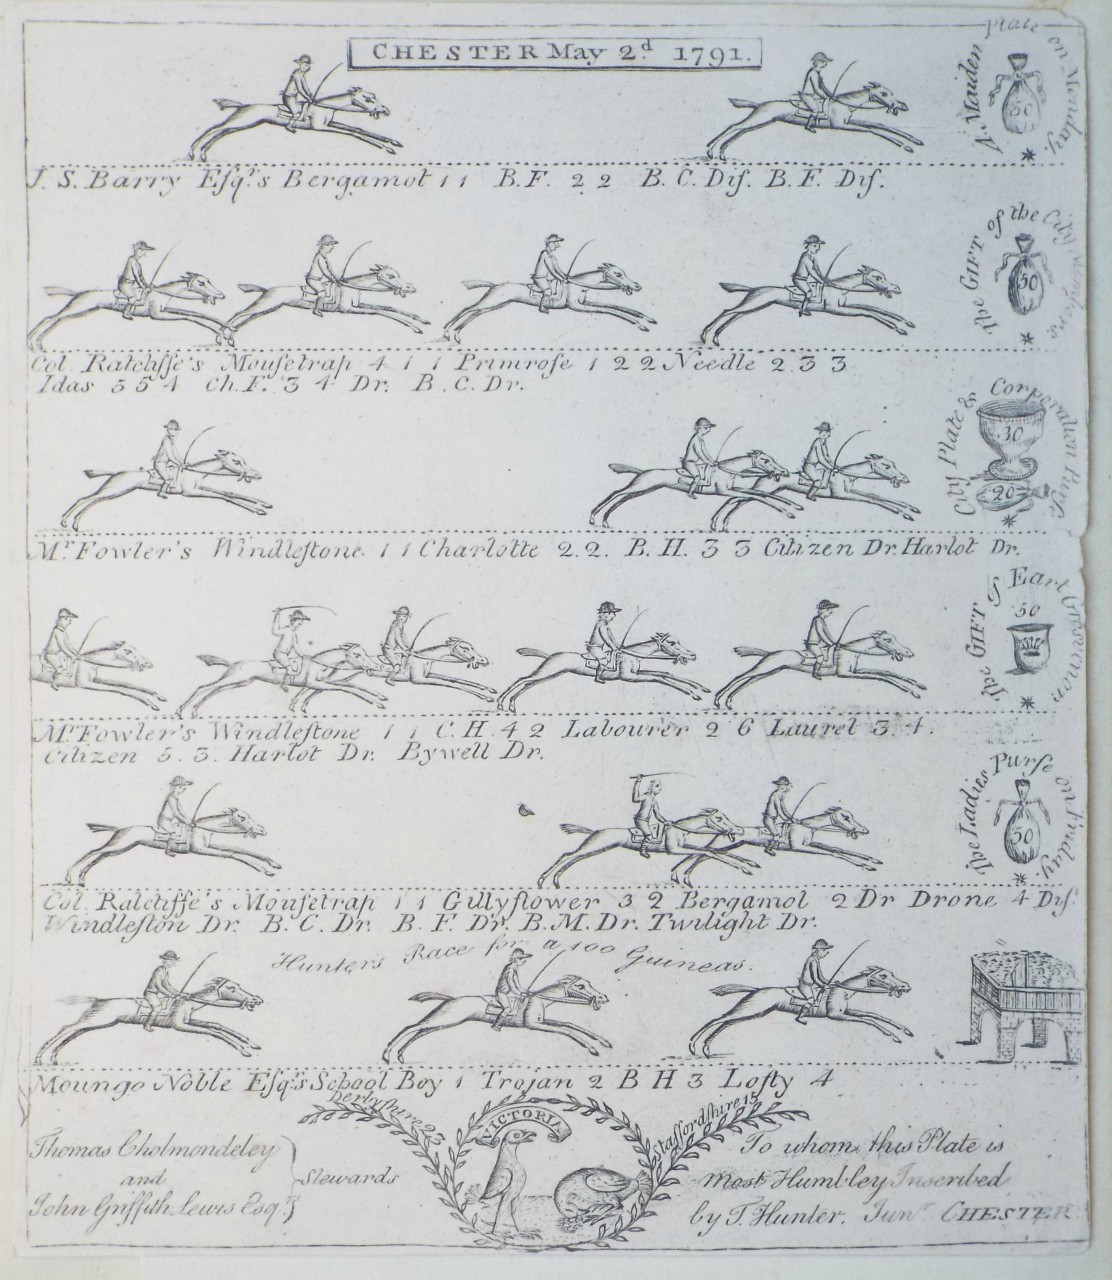 CHESTER May 2d 1791.
A. Maiden Plate on Monday.
50
J. S. Barry Esqr.s Bergamot 1 1 B.F. 2 2 B. C. Dis. B. F. Dis.
The GIFT of the City Members
50
Col. Ratcliffe's Mousetrap 4 1 1 Primrose 1 2 2 Needle 2 3 3
Idas 5 5 4 Ch. F. 3 4 Dr. B. C. Dr.
City Plate & Corporation Purse
30
20
Mr Fowler's Windlestone 1 1 Charlotte 2 2. B. H. 3 3 Citizen Dr. Harlot Dr.
The GIFT of Earl Grosvenor
50
Mr Fowler's Windlestone 1 1 C. H. 4 2 Labourer 2 6 Laurel 3. 4.
Citizen 5. 3. Harlot Dr. Bywell Dr.
The Ladies Purse on Friday
50
Col. Ratcliffe's Mousetrap 1 1 Gillyflower 3 2 Bergamot 2 Dr Drone 4 Dis.
Windleston Dr. B. C. Dr. B. F. Dr. B. M. Dr. Twilight Dr.
Hunters Race for a 100 Guineas.
Moungo Noble Esqr.s School Boy 1 Trojan 2 B H 3 Lofty 4
Derbyshire 23
VICTORIA
Staffordshire 15
Thomas Cholmondeley
and
John Griffith Lewis Esqrs
Stewards
To whom this Plate is
most Humbley Inscribed
by T. Hunter. Junr. CHESTER